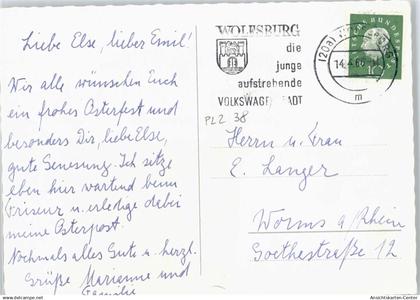 Liebe Else, lieber Emil!
Wir alle wünschen Euch
ein frohes Osterfest und
besonders Dir, liebe Else,
gute Genesung. Ich sitze
eben hier wartend beim
Friseur u. erledige dabei
meine Osterpost.
Nochmals alles Gute u. herzl.
Grüße Marianne und
Familie
WOLFSBURG
die
junge
aufstrebende
VOLKSWAGENSTADT
(20a) WOLFSBURG
14.4.60
m
10
PLZ 38
Herrn u. Frau
E. Langer
Worms a/Rhein
Goethestraße 12
Ansichtskarten-Center